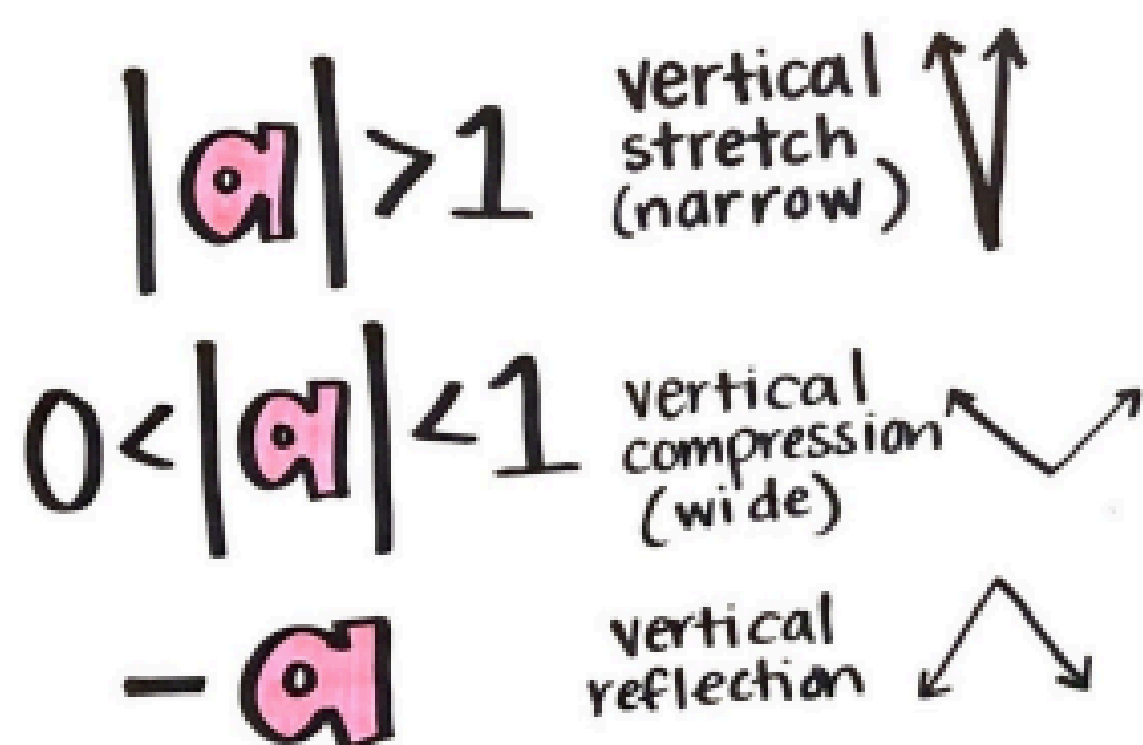 |a|>1
vertical
stretch
(narrow)
0<|a|<1
vertical
compression
(wide)
-a
vertical
reflection